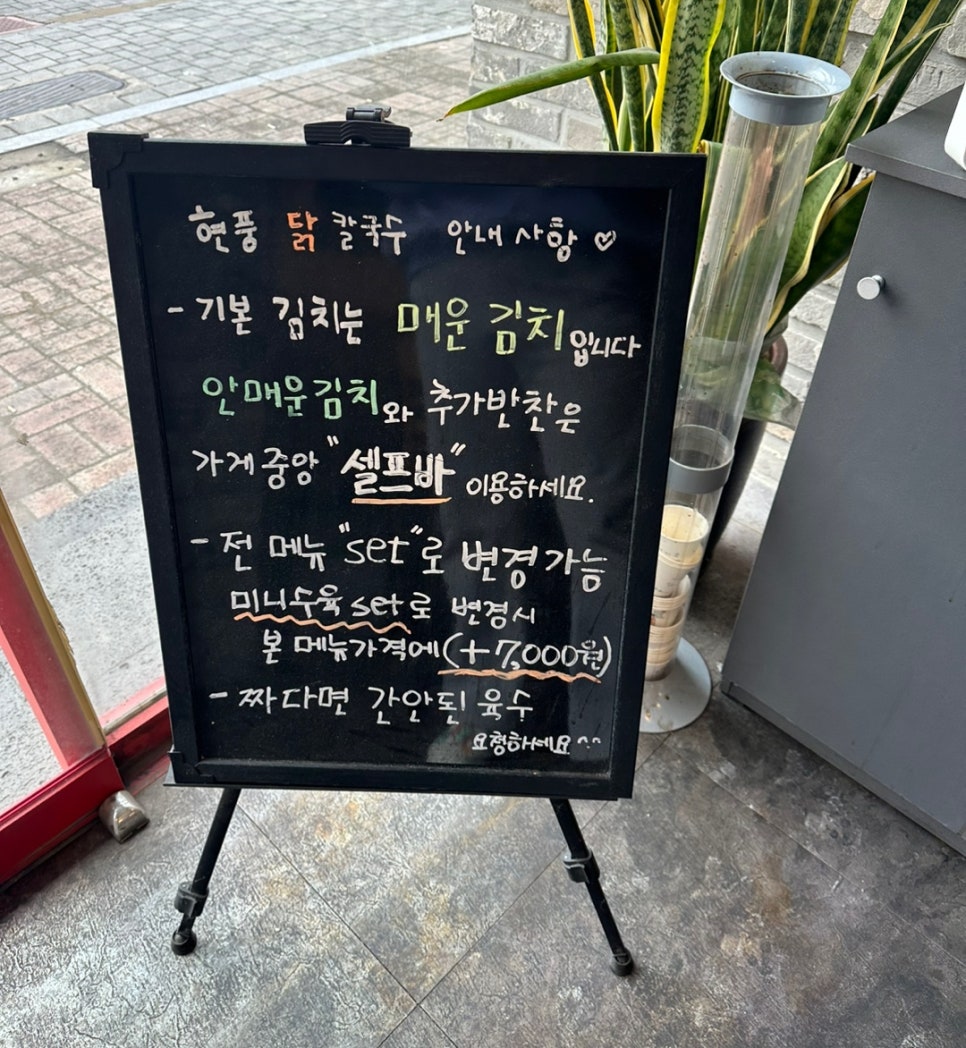 현풍 닭 칼국수 안내사항 ♡
- 기본 김치는 매운 김치입니다
안매운김치와 추가반찬은
가게 중앙 "셀프바" 이용하세요.
- 전 메뉴 "set"로 변경가능
미니수육 set로 변경시
본 메뉴가격에 (+7,000원)
- 짜다면 간안된 육수
요청하세요^^